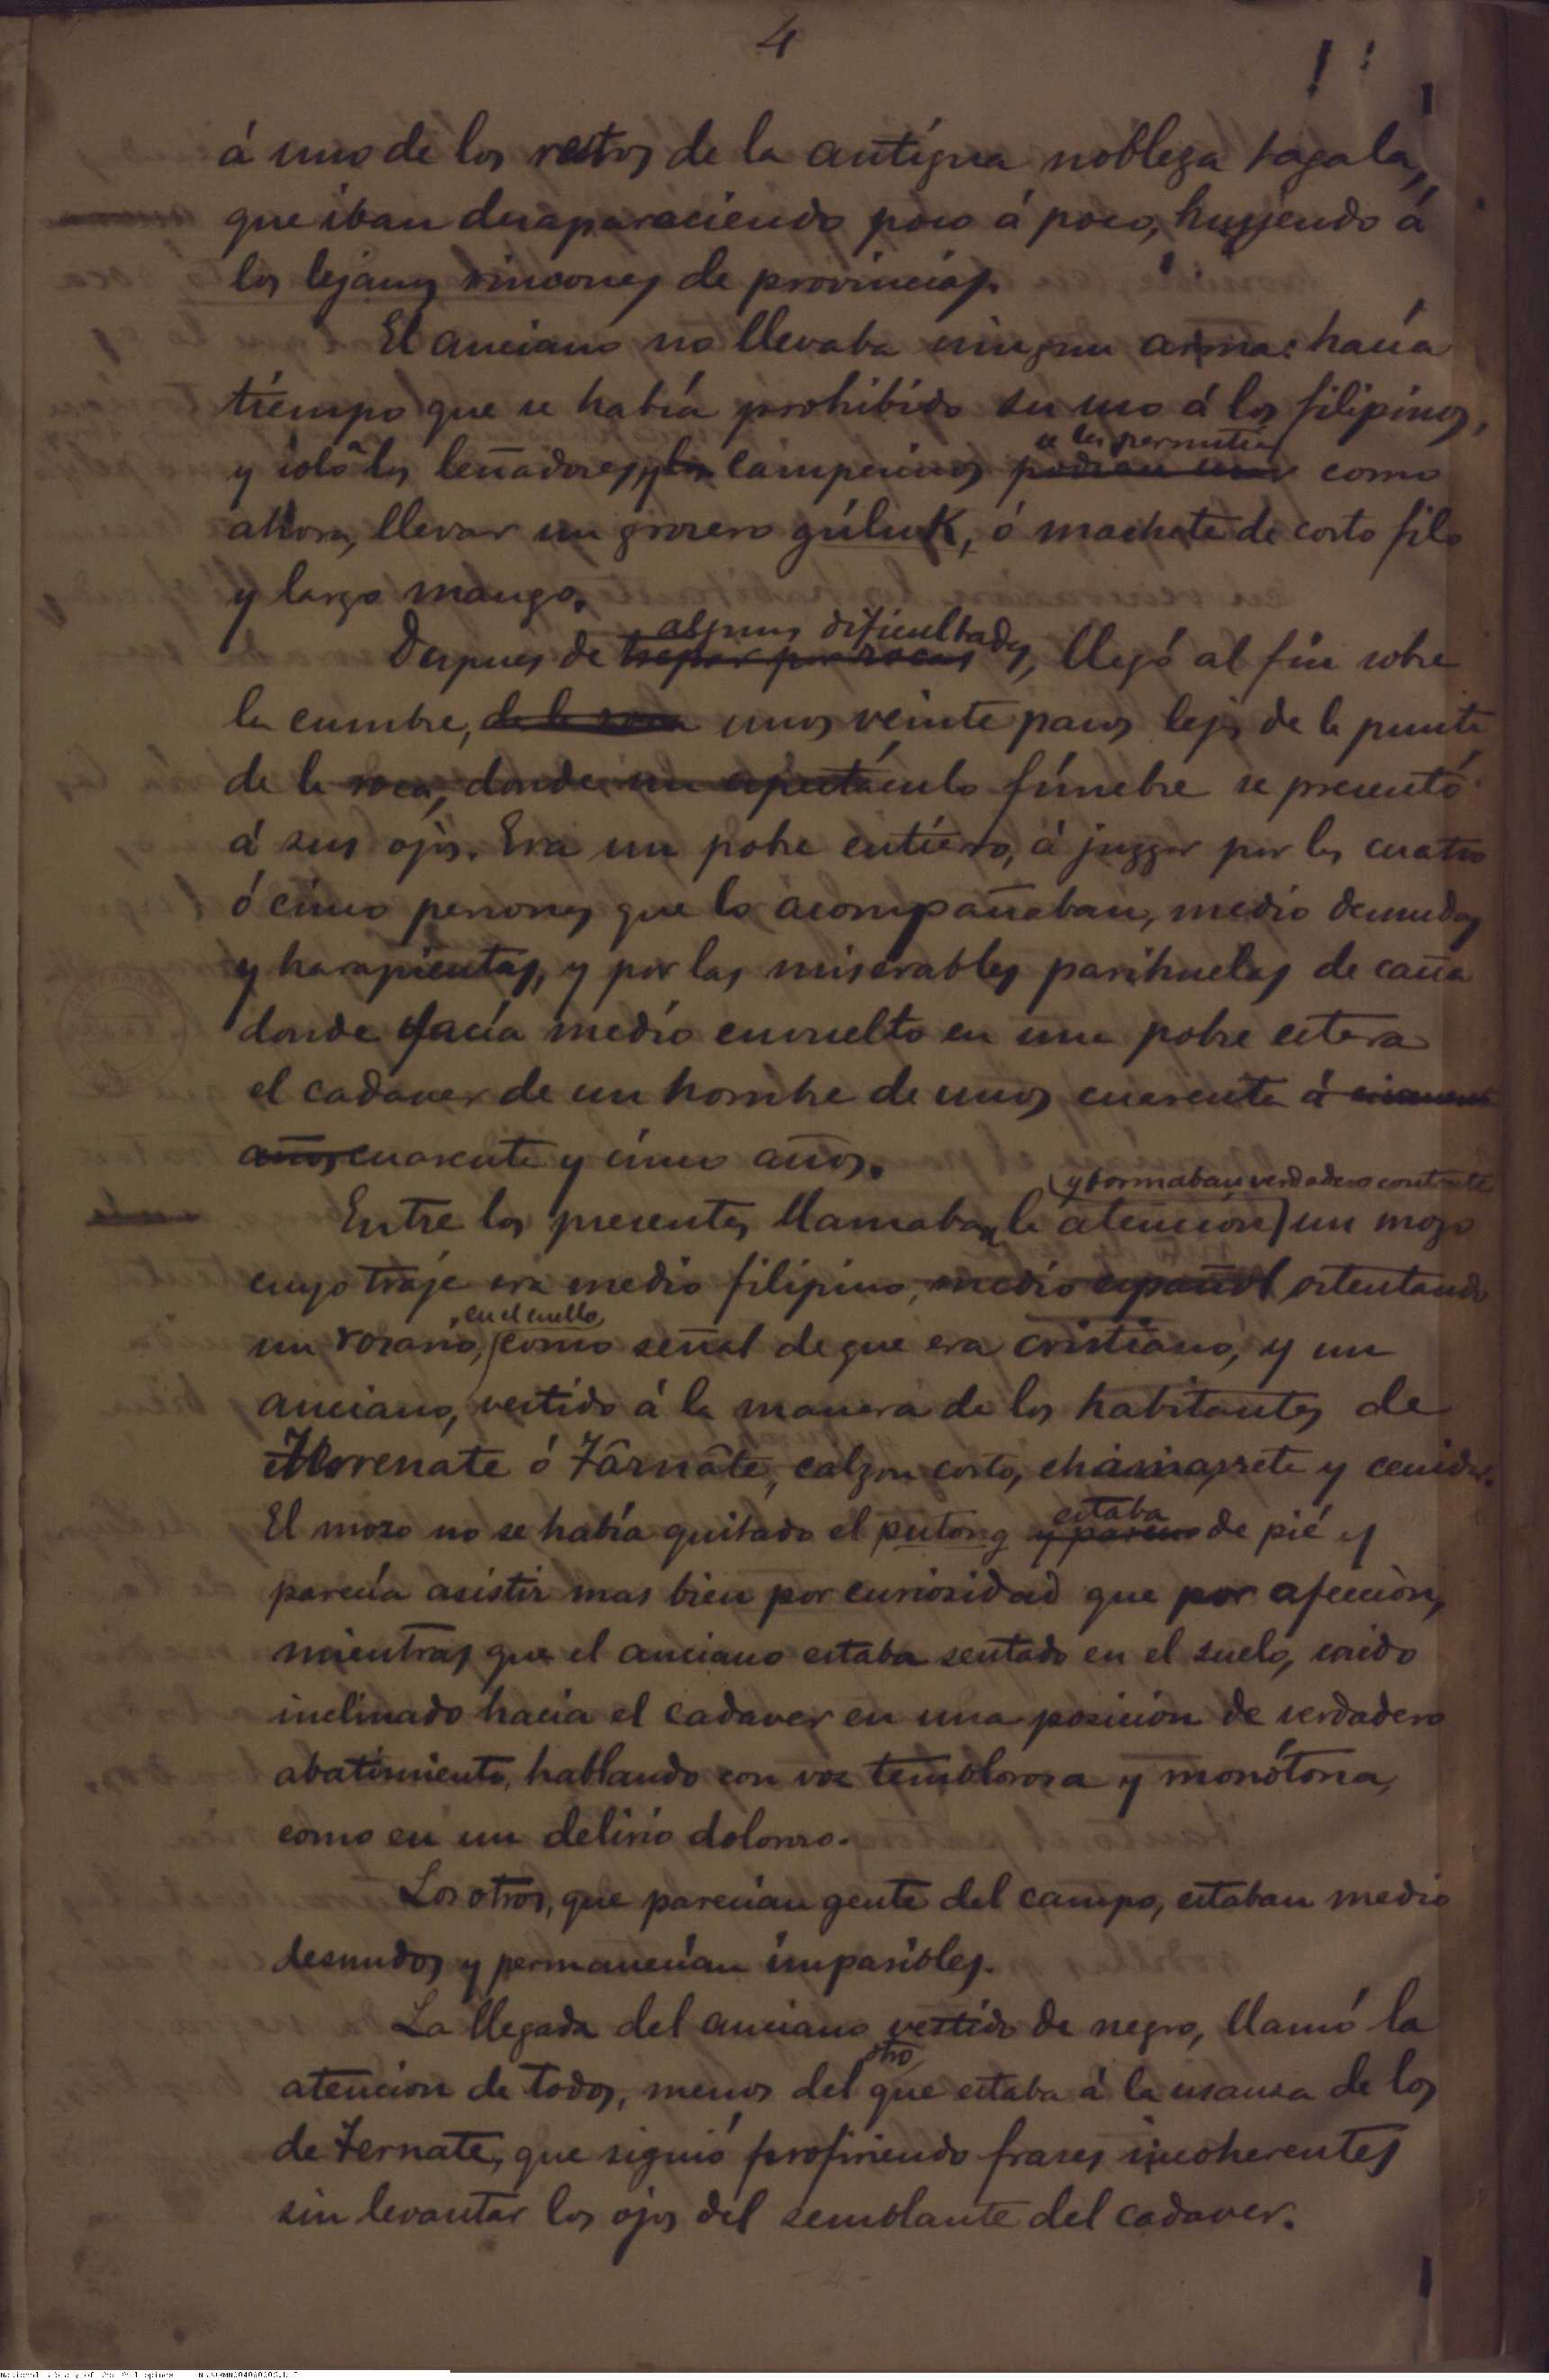 4
á uno de los restos de la antigua nobleza tagala,
que iban desapareciendo poco á poco, huyendo á
los lejanos rincones de provincias.
El anciano no llevaba ningun arma: hacía
tiempo que se había prohibido su uso á los filipinos,
se les permitía
y solo á los leñadores, y los campesinos podian usar como
ahora, llevar un grosero gúluk, ó machete de corto filo
y largo mango.
algunas dificultades,
Despues de trepar por rocas llegó al fin sobre
la cumbre, de la roca unos veinte pasos lejos de la punta
de la roca, donde un espectáculo fúnebre se presentó
á sus ojos. Era un pobre entierro, á juzgar por las cuatro
ó cinco personas que lo acompañaban, medio desnudas
y harapientas, y por las miserables parihuelas de caña
donde yacía medio envuelto en una pobre estera
el cadaver de un hombre de unos cuarenta á cincuenta
años cuarenta y cinco años.
y formaban verdadero contraste
Entre los presentes llamaban la atencion un mozo
cuyo traje era medio filipino, medio español ostentando
en el cuello,
un rosario, como señal de que era cristiano, y un
anciano, vestido á la manera de los habitantes de
renate ó Târnâte, calzon corto, chamarreta y ceñidor.
estaba
El mozo no se había quitado el putong y parecia de pié y
parecía asistir mas bien por curiosidad que por afeccion,
mientras que el anciano estaba sentado en el suelo, caido
inclinado hacia el cadaver en una posicion de verdadero
abatimiento, hablando con voz temblorosa y monótona,
como en un delirio doloroso.
Los otros, que parecian gente del campo, estaban medio
desnudos y permanecian impasibles.
La llegada del anciano vestido de negro, llamó la
otro
atencion de todos, menos del que estaba á la usanza de los
de Ternate, que siguió profiriendo frases incoherentes
sin levantar los ojos del semblante del cadaver.
- 4 -